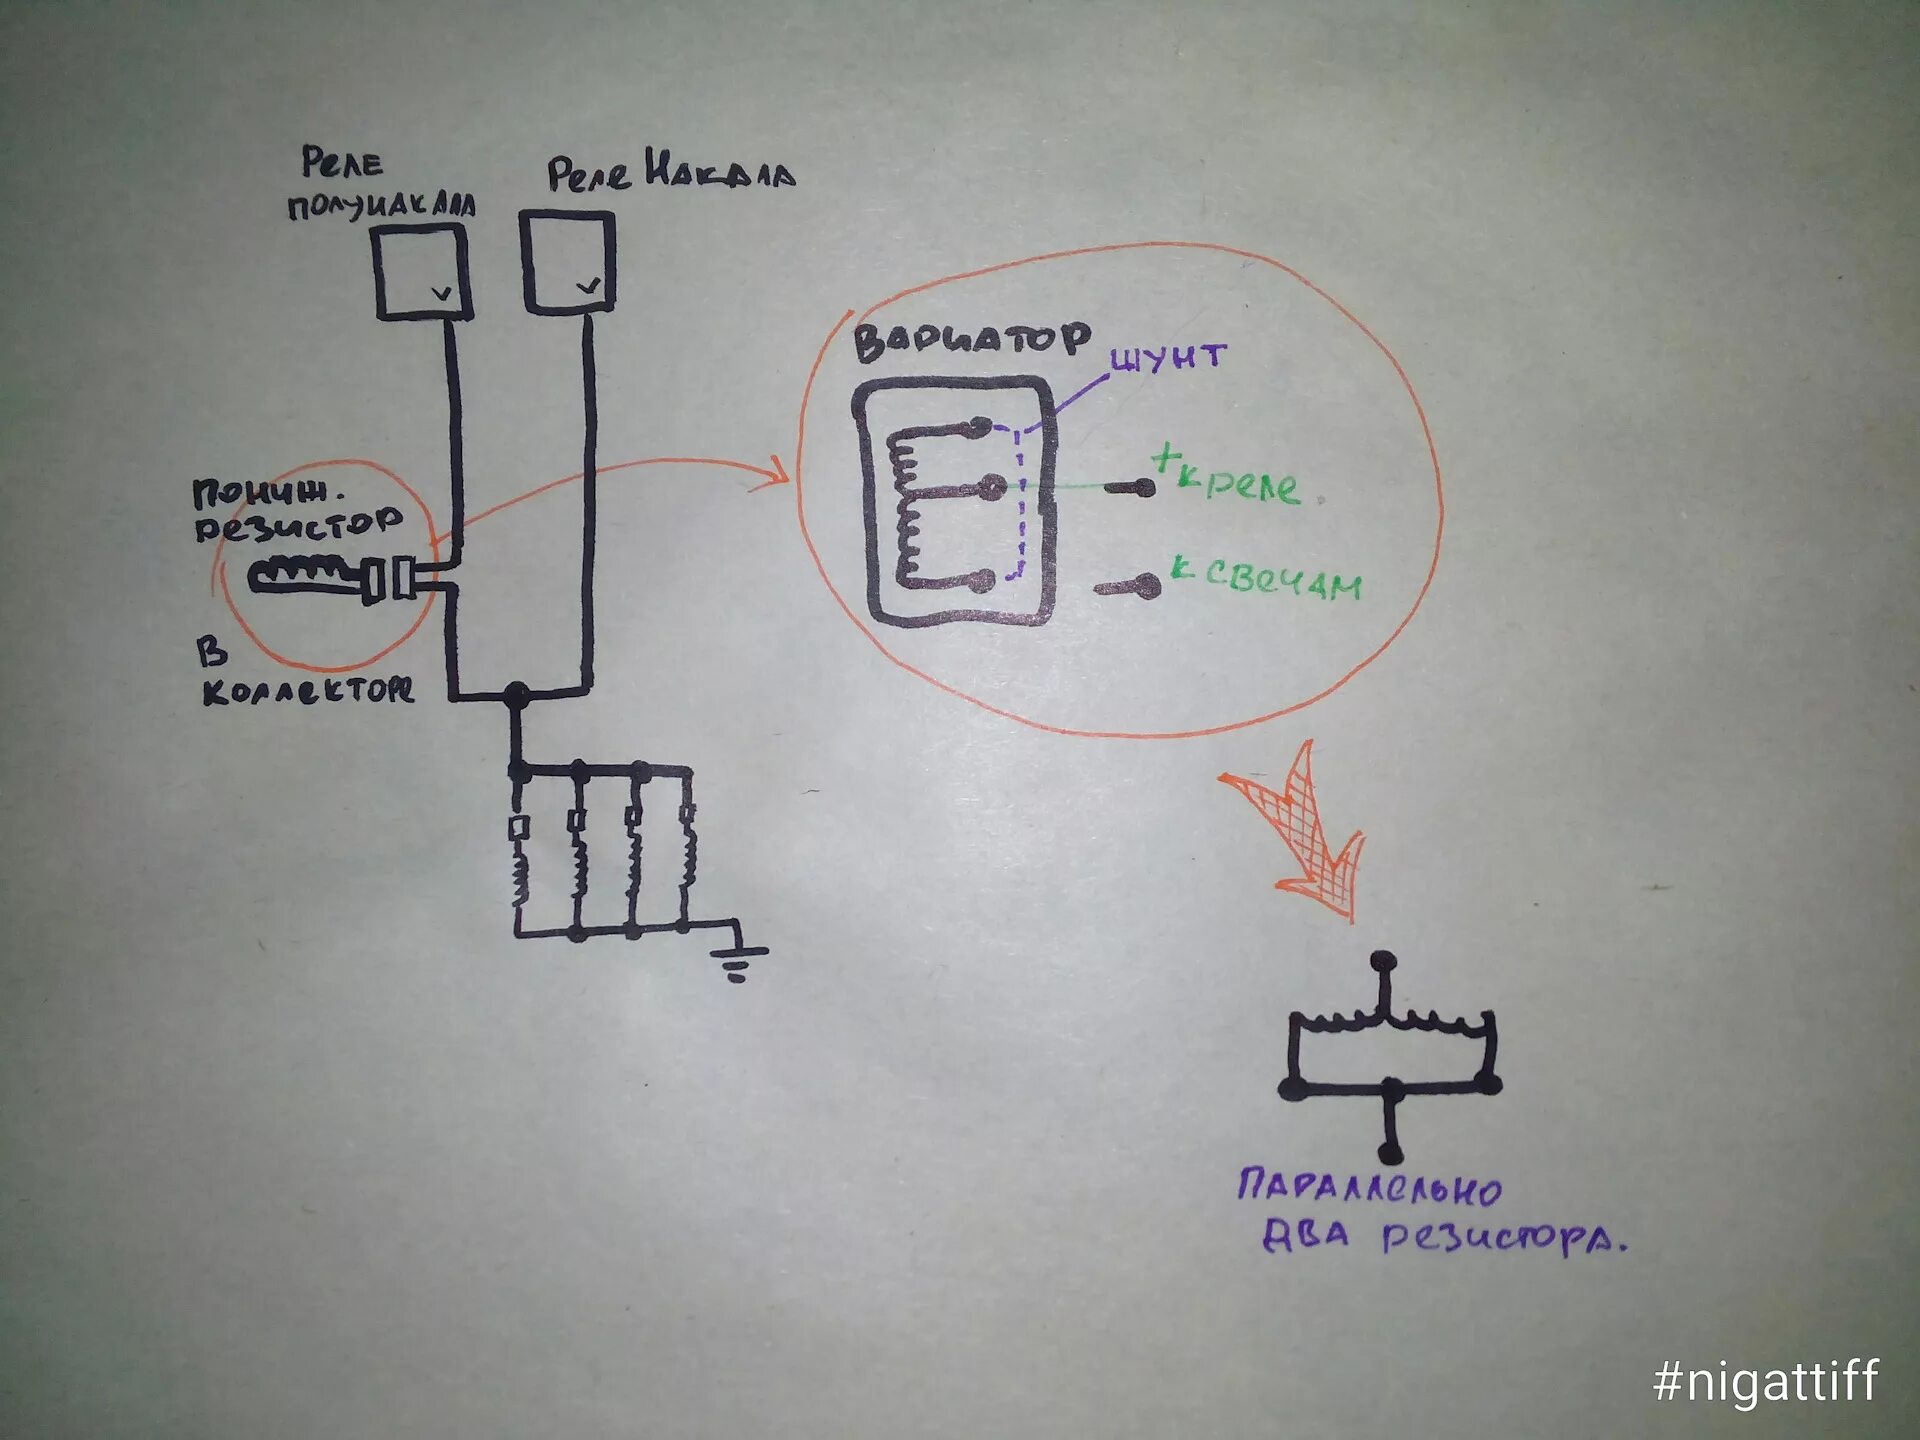 Реле
полунакала
Реле Накала
Пониж.
резистор
В
коллекторе
Вариатор
шунт
+ к реле
к свечам
Параллельно
два резистора.
#nigattiff